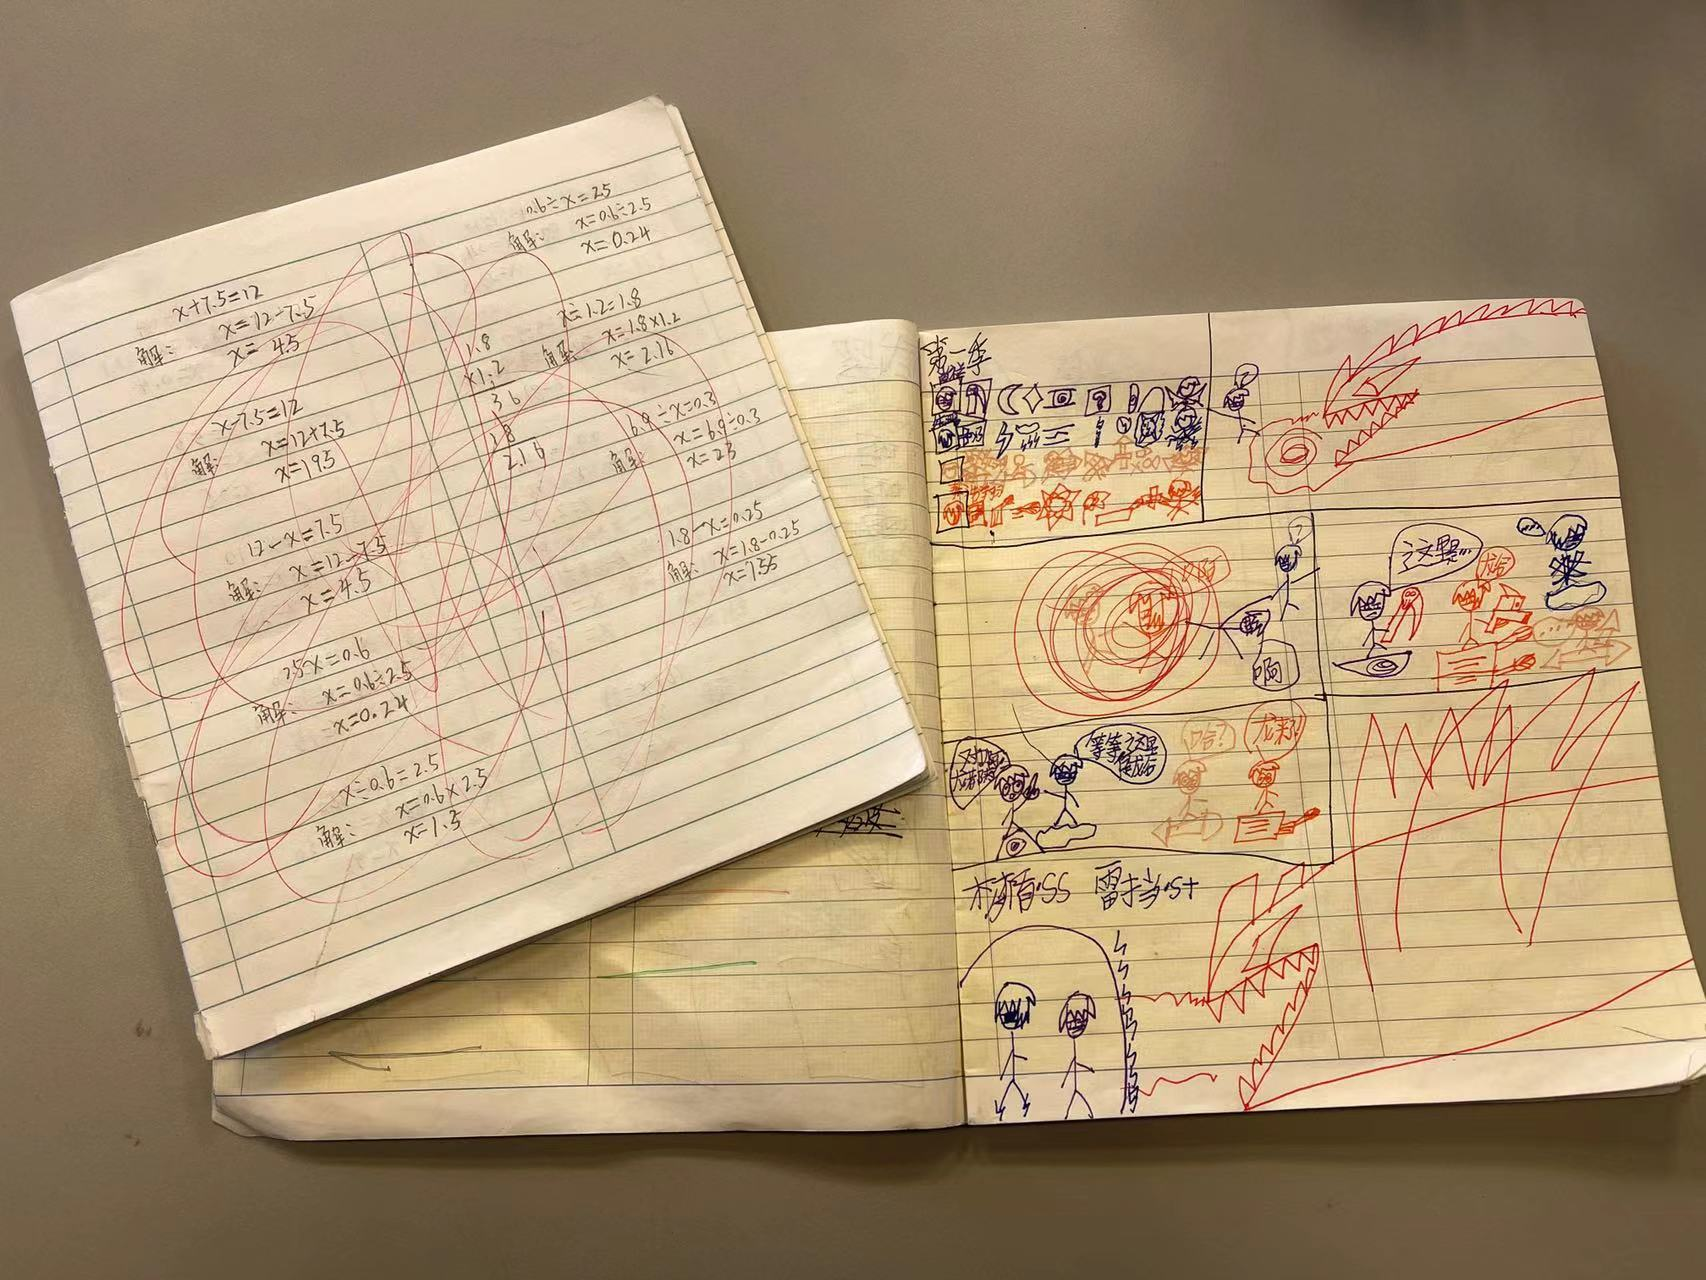 x+7.5=12
解: x=12-7.5
x=4.5
x-7.5=12
解: x=12+7.5
x=19.5
12-x=7.5
解: x=12-7.5
x=4.5
2.5x=0.6
解: x=0.6÷2.5
x=0.24
x÷0.6=2.5
解: x=0.6×2.5
x=1.5
0.6÷x=2.5
解: x=0.6÷2.5
x=0.24
x÷1.2=1.8
解: x=1.8×1.2
x=2.16
1.8
×1.2
36
18
2.16
6.9÷x=0.3
解: x=6.9÷0.3
x=23
1.8-x=0.25
解: x=1.8-0.25
x=1.55
第一季
?
?
啊
啊
?
这里…
等等这里
哈?
龙来!
SS 雷挡:S+